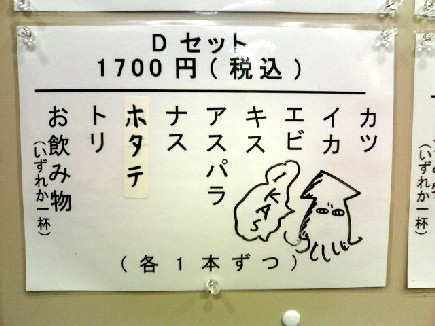 D セット
1700円(税込)
カツ
イカ
エビ
キス
アスパラ
ナス
ホタテ
トリ
お飲み物
(いずれか一杯)
IKAS
(各1本ずつ)